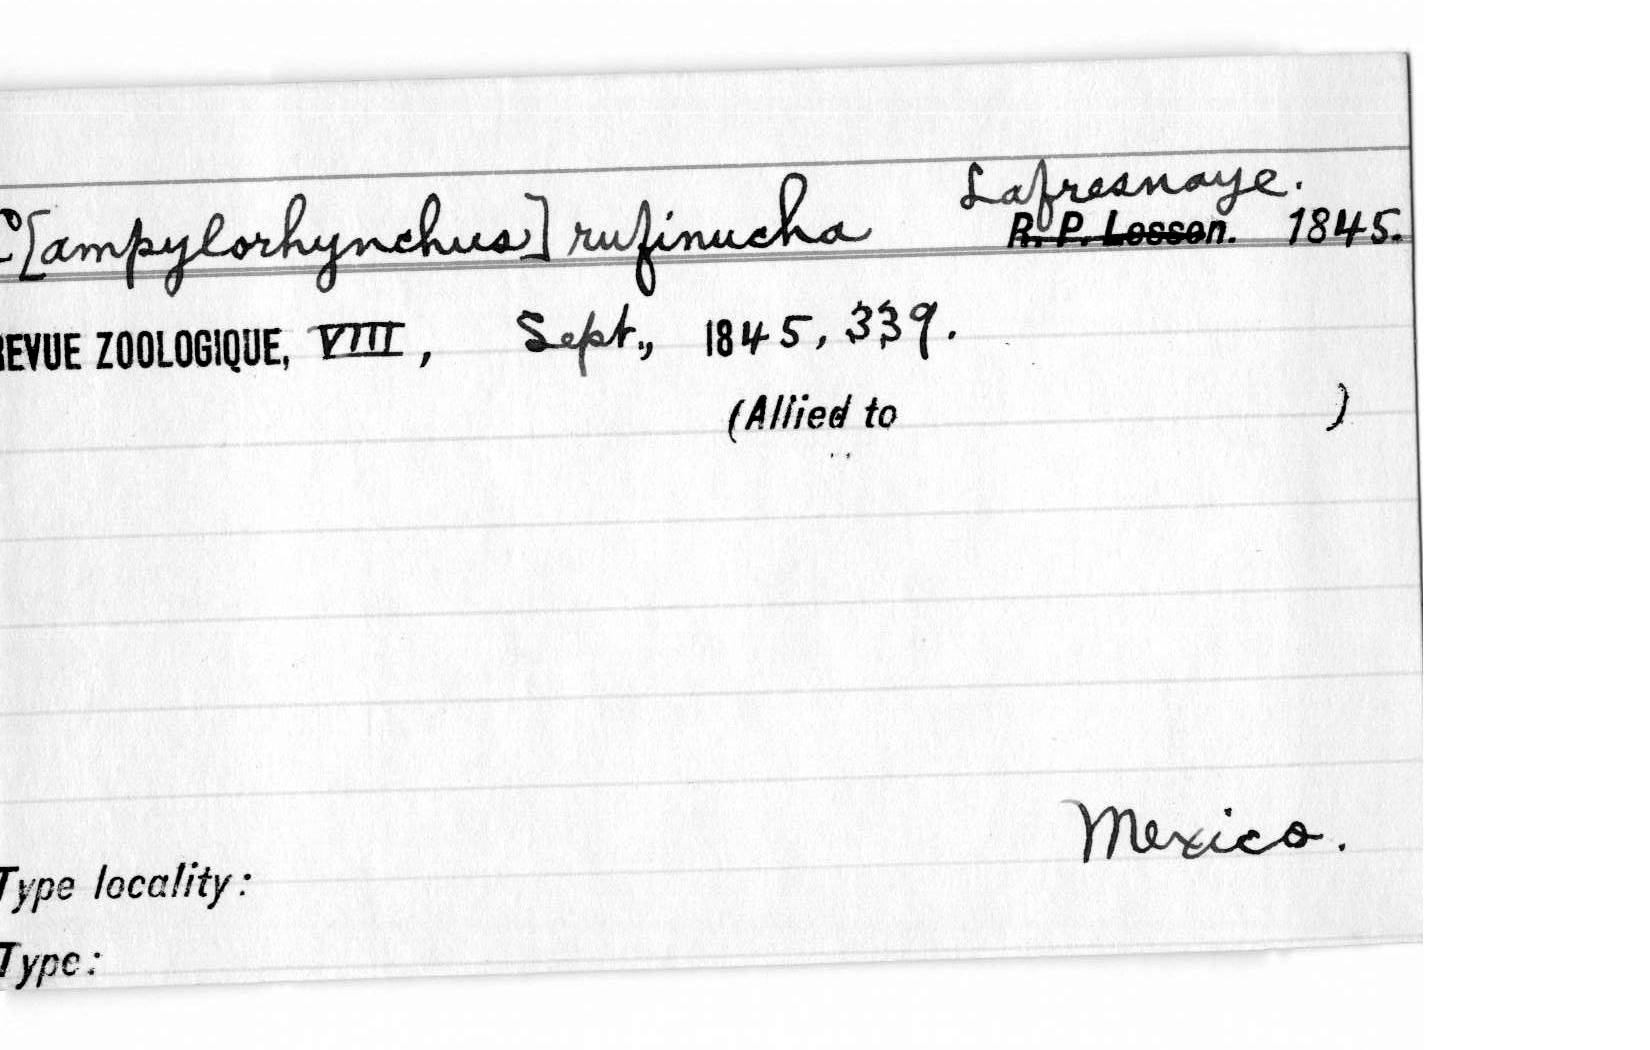 C[ampylorhynchus] rufinucha Lafresnaye.
R. P. Lesson. 1845.
REVUE ZOOLOGIQUE, VIII, Sept., 1845, 339.
(Allied to )
Mexico.
Type locality:
Type: